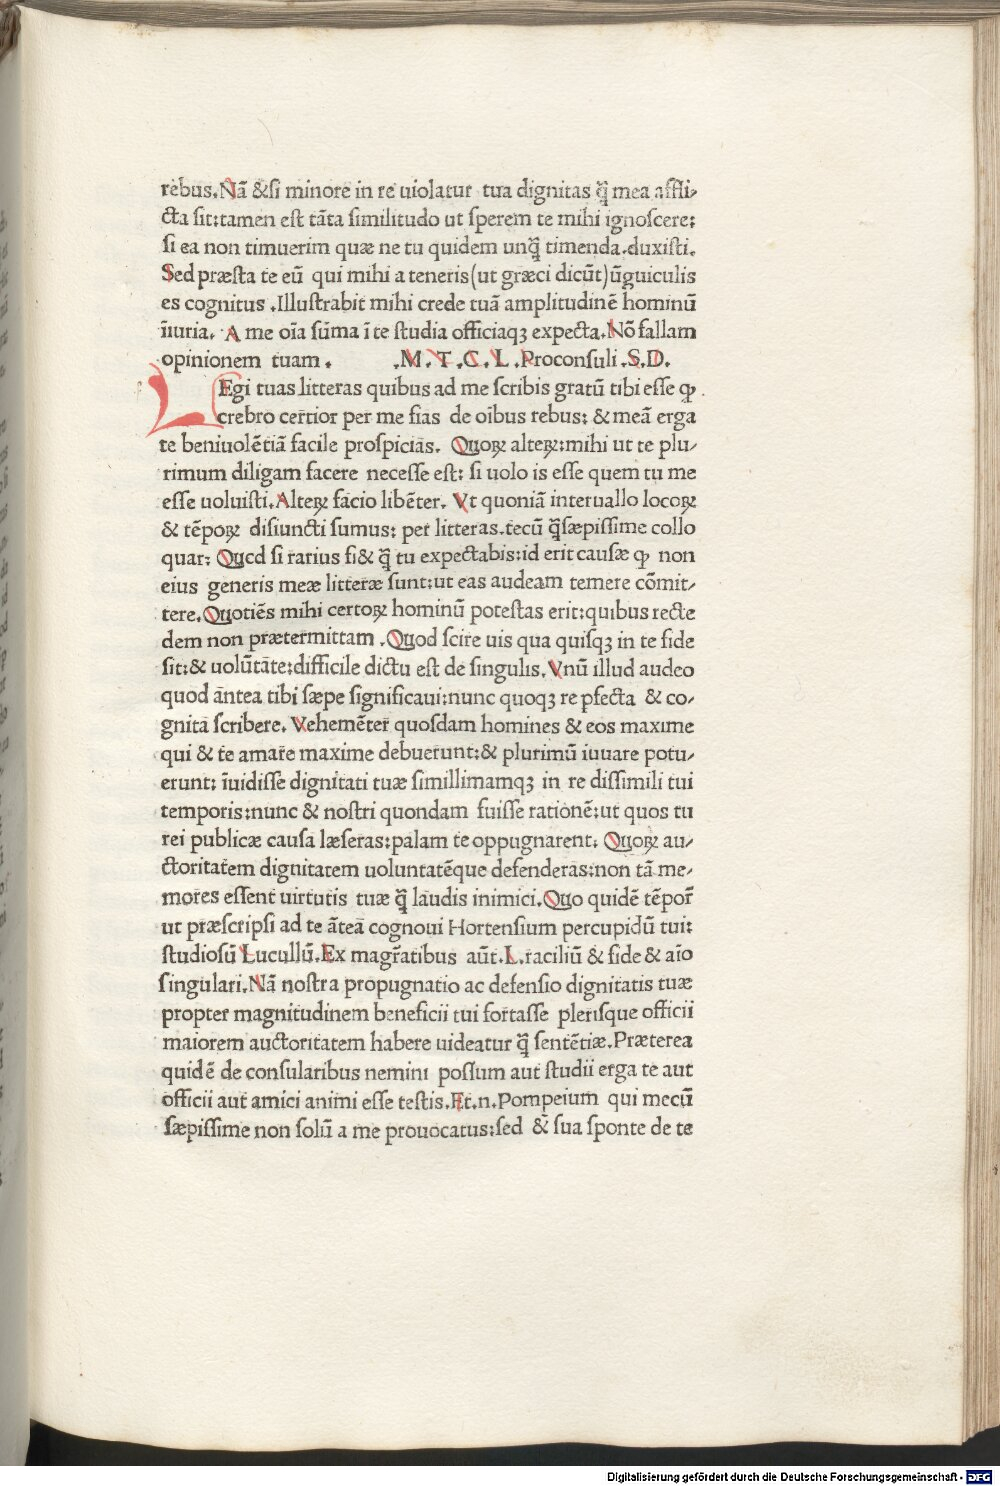 rebus.Nã &si minore in re uiolatur tua dignitas q̃ mea affli-
cta sit:tamen est tãta similitudo ut sperem te mihi ignoscere:
si ea non timuerim quæ ne tu quidem unq̃ timenda.duxisti.
Sed præsta te eũ qui mihi a teneris(ut græci dicũt)ũguiculis
es cognitus .Illustrabit mihi crede tuã amplitudinẽ hominũ
ĩiuria. A me oĩa sũma ĩ te studia officiaqꝫ expecta.Nõ fallam
opinionem tuam . .M.T.C.L.Proconsuli.S.D.
LEgi tuas litteras quibus ad me scribis gratũ tibi esse ꝙ
crebro certior per me fias de oibus rebus: & meã erga
te beniuolẽtiã facile prospicias. Quoꝝ alteꝝ:mihi ut te plu-
rimum diligam facere necesse est: si uolo is esse quem tu me
esse uoluisti.Alteꝝ facio libẽter. Vt quoniã interuallo locoꝝ
& tẽpoꝝ disiuncti sumus: per litteras.tecũ q̃sæpissime collo
quar: Quod si rarius fi& q̃ tu expectabis:id erit causæ ꝙ non
eius generis meæ litteræ sunt:ut eas audeam temere cõmit-
tere.Quotiẽs mihi certoꝝ hominũ potestas erit:quibus recte
dem non prætermittam .Quod scire uis qua quisqꝫ in te fide
sit:& uolũtate:difficile dictu est de singulis.Vnũ illud audeo
quod ãntea tibi sæpe significaui:nunc quoqꝫ re pfecta & co-
gnita scribere. Vehemẽter quosdam homines & eos maxime
qui & te amare maxime debuerunt:& plurimũ iuuare potu-
erunt: ĩuidisse dignitati tuæ simillimamqꝫ in re dissimili tui
temporis:nunc & nostri quondam fuisse rationẽ:ut quos tu
rei publicæ causa læseras:palam te oppugnarent: Quoꝝ au-
ctoritatem dignitatem uoluntatẽque defenderas:non tã me-
mores essent uirtutis tuæ q̃ laudis inimici.Quo quidẽ tẽpor̃
ut præscripsi ad te ãtea cognoui Hortensium percupidũ tui:
studiosũ Lucullũ.Ex magr̃atibus aũt.L.raciliũ & fide & aĩo
singulari.Nã nostra propugnatio ac defensio dignitatis tuæ
propter magnitudinem beneficii tui fortasse plerisque officii
maiorem auctoritatem habere uideatur q̃ sentẽtiæ.Præterea
quidẽ de consularibus nemini possum aut studii erga te aut
officii aut amici animi esse testis.Et.n.Pompeium qui mecũ
sæpissime non solũ a me prouocatus:sed & sua sponte de te
Digitalisierung gefördert durch die Deutsche Forschungsgemeinschaft - DFG